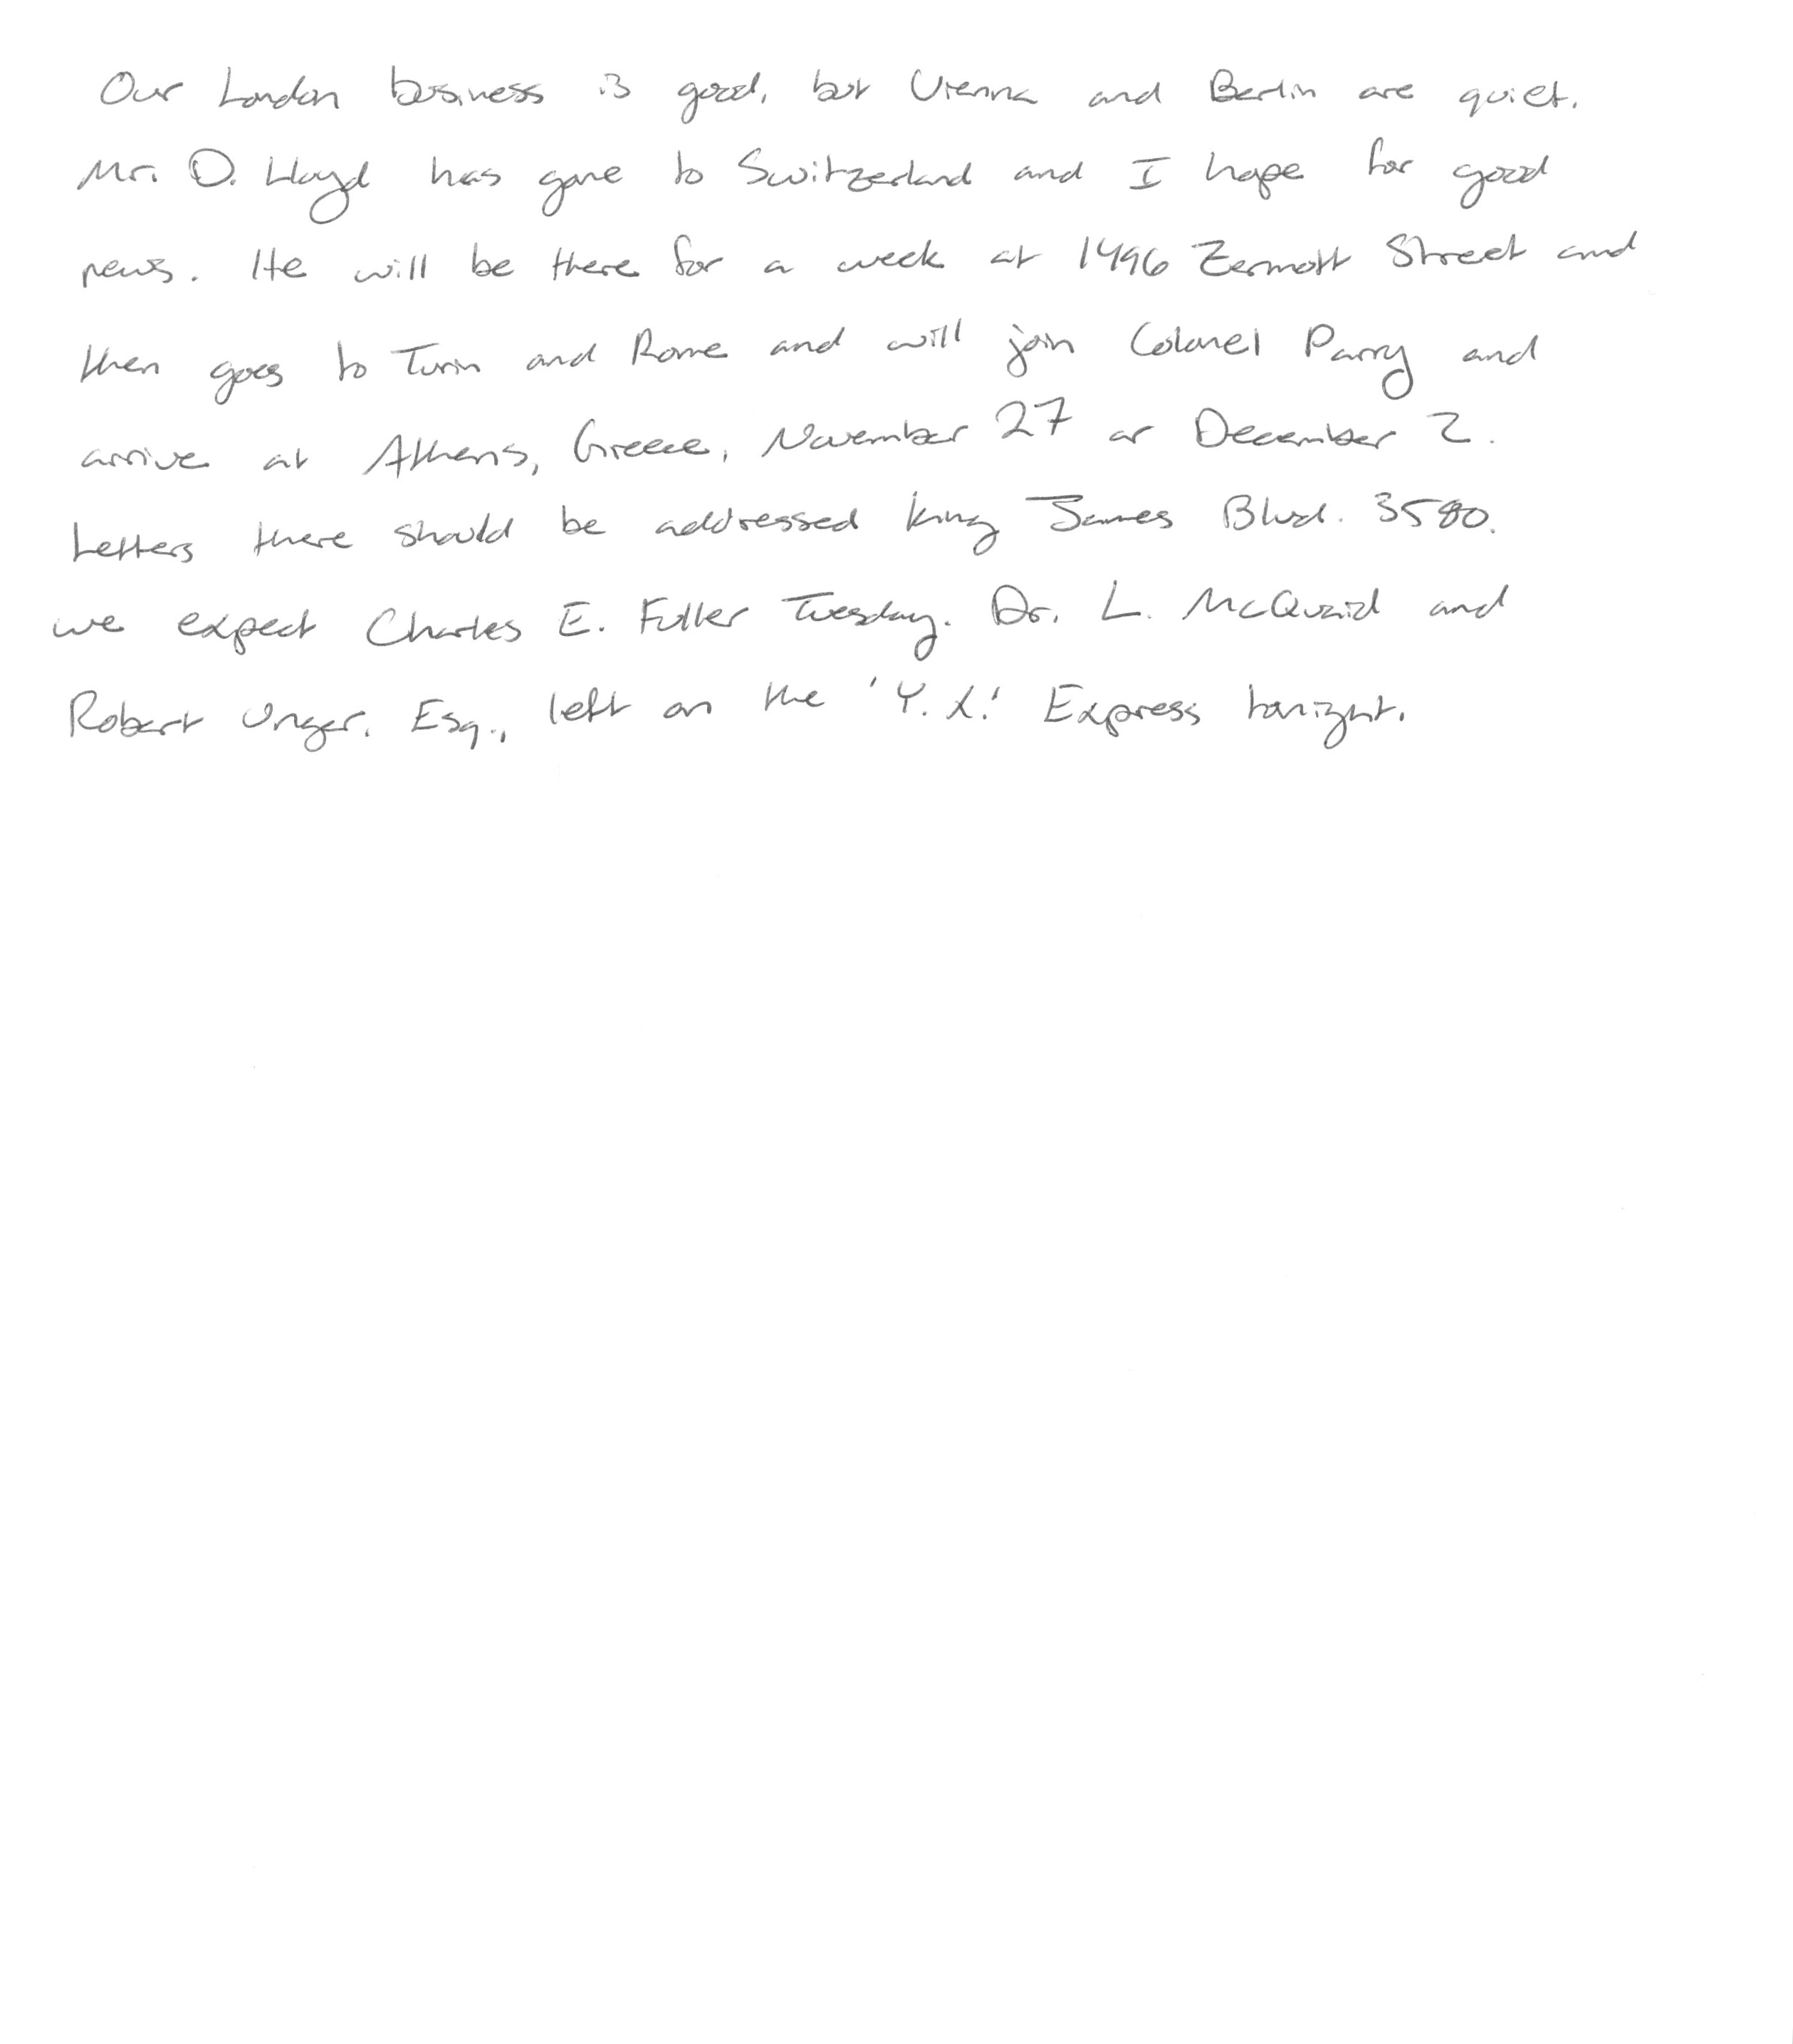 Our London business is good, but Vienna and Berlin are quiet.
Mr. D. Lloyd has gone to Switzerland and I hope for good
news. He will be there for a week at 1496 Zermott Street and
then goes to Turin and Rome and will join Colonel Parry and
arrive at Athens, Greece, November 27 or December 2.
Letters there should be addressed King James Blvd. 3580.
we expect Charles E. Fuller Tuesday. Dr. L. McQuaid and
Robert Unger. Esq., left on the 'Y.X.' Express tonight.